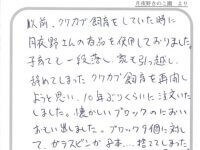 月夜野きのこ園 より
以前、クワカブ飼育をしていた時に
月夜野さんの商品を使用しておりました。
子育ても一段落し、家も引っ越し、
辞めてしまったクワカブ飼育を再開し
ようと思い、10年ぶりくらいに注文い
たしました。懐かしいブロックのにおい
おもい出しました。ブロック9個に対し
て、ガラスビンが8本… 捨ててしまった